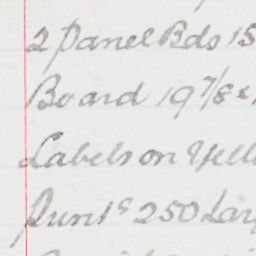 2 Panel Bds 15
Board 19 7/8 x
Labels on Yell
Run 1s 250 Lar